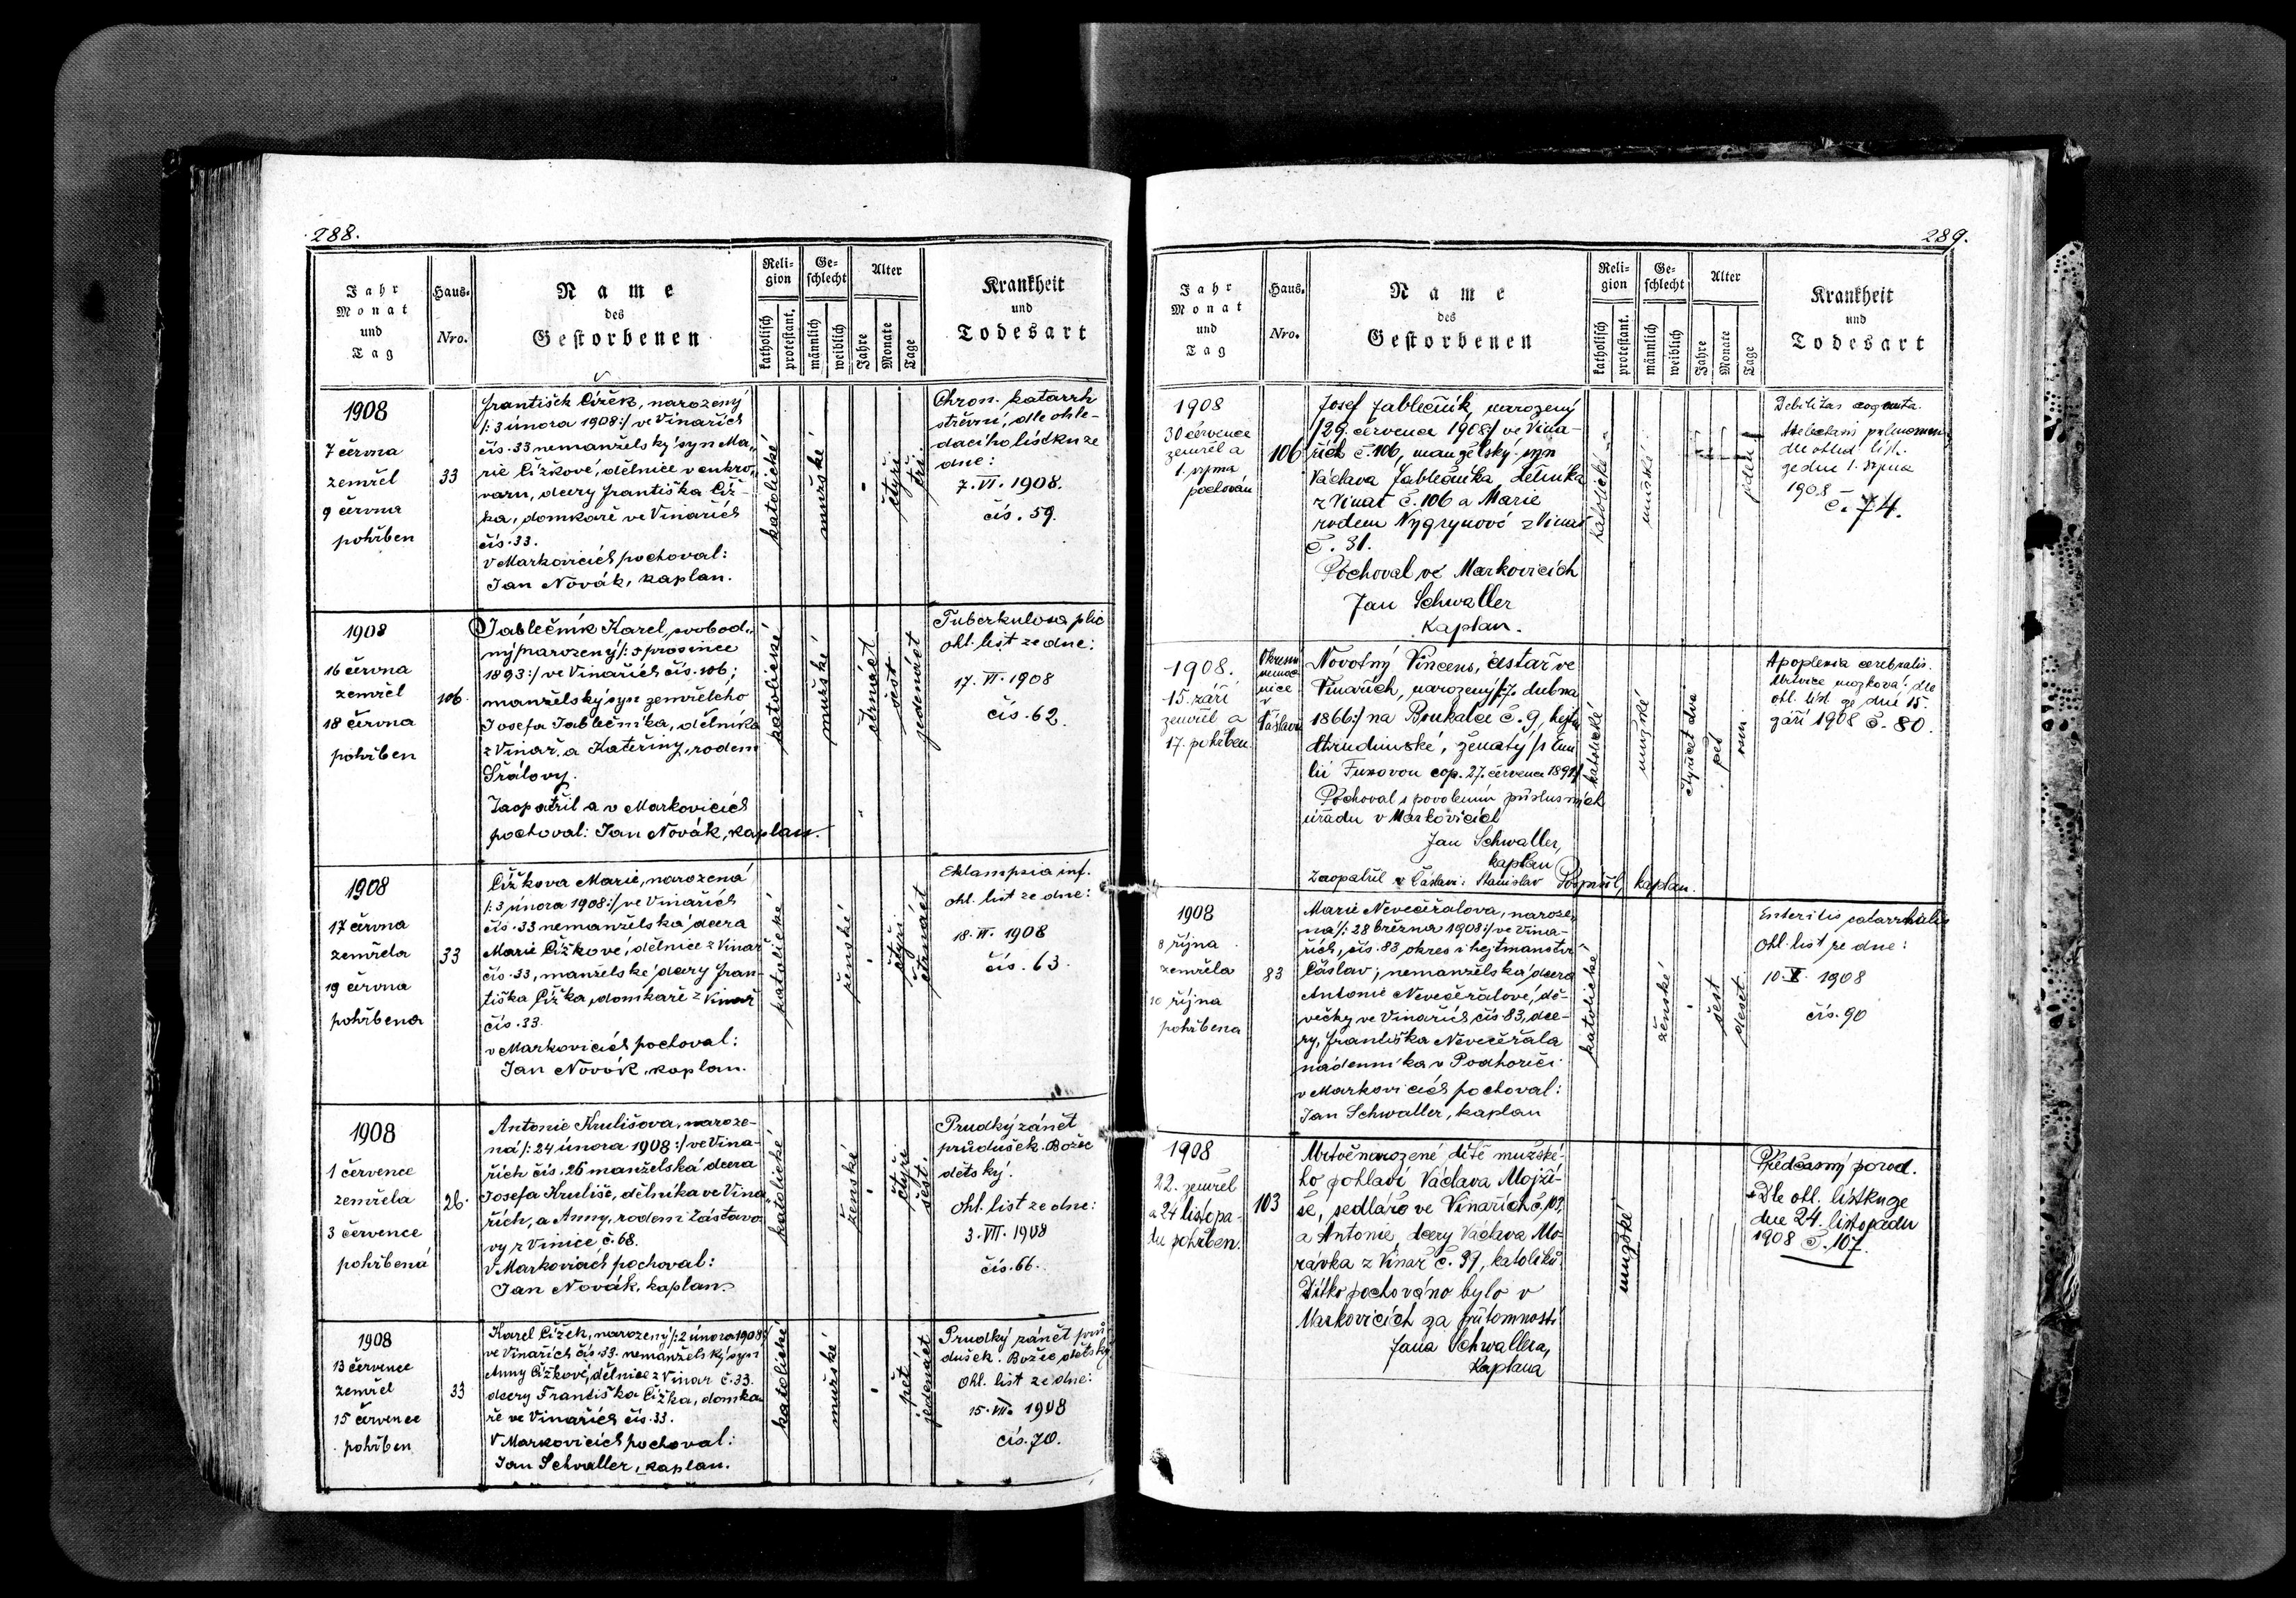 288.
Jahr
Monat
und
Tag
Haus-
Nro.
Name
des
Gestorbenen
Reli-
gion
katholisch
protestant.
Ge-
schlecht
männlich
weiblich
Alter
Jahre
Monate
Tage
Krankheit
und
Todesart
1908
7 června
zemřel
9 června
pohřben
33
František Čížek, narozený
/:3 února 1908:/ ve Vinařích
čís. 33 nemanželský syn Ma„
rie Čížkové, dělnice v cukro„
varu, dcery Františka Číž-
ka, domkaře ve Vinařích
čís. 33.
V Markovicích pochoval:
Jan Novák, kaplan.
katolické
mužské
čtyři
tři
Chron. katarrh
střevní, dle ohle-
dacího lístku ze
dne:
7. VI. 1908.
čís. 59.
1908
16 června
zemřel
18 června
pohřben
106.
Jablečník Karel, svobod„
ný narozený /: 5 prosince
1893:/ ve Vinařích čís. 106;
manželský syn zemřelého
Josefa Jablečníka, dělníka
z Vinař. a Kateřiny, rodem
Zaopatřil a v Markovicích
pochoval: Jan Novák, kaplan.
katolické
mužské
čtrnáct
šest
jedenáct
Tuberkulosa plic
ohl. list ze dne:
17. VI. 1908
čís. 62.
1908
17 června
zemřela
19 června
pohřbena
33
Čížkova Marie, narozená
/:3 února 1908:/ ve Vinařích
čís. 33 nemanželská dcera
Marie Čížkové, dělnice z Vinař
čís. 33, manželské dcery Fran-
tiška Čížka, domkaře z Vinař
čís. 33.
v Markovicích pochoval:
Jan Novák, kaplan.
katolické
ženské
čtyři
čtrnáct
Eklampsia inf.
ohl. list ze dne:
18. VI. 1908
čís. 63.
1908
1 července
zemřela
3 července
pohřbena
26.
Antonie Krulišova, naroze-
ná /: 24 února 1908 :/ ve Vina-
řích čís. 26 manželská dcera
Josefa Kruliše, dělníka ve Vina„
řích, a Anny, rodem Zástavo
vy z Vinice č. 68.
V Markovicích pochoval:
Jan Novák, kaplan.
katolické
ženské
čtyři
šest.
Prudký zánět
průdušek. Božec
dětský.
Ohl. list ze dne:
3. VII. 1908
čís. 66.
1908
13 července
zemřel
15 července
pohřben
33
Karel Čížek, narozený /: 2 února 1908:/
ve Vinařích čís. 33. nemanželský syn
Anny Čížkové, dělnice z Vinař č. 33.
dcery Františka Čížka, domka
ře ve Vinařích čís. 33.
V Markovicích pochoval:
Jan Schwaller, kaplan.
katolické
mužské
pět
jedenáct
Prudký zánět prů
dušek. Božec dětský.
Ohl. list ze dne:
15. VII. 1908
čís. 70.
289.
Jahr
Monat
und
Tag
Haus-
Nro.
Name
des
Gestorbenen
Reli-
gion
katholisch
protestant.
Ge-
schlecht
männlich
weiblich
Alter
Jahre
Monate
Tage
Krankheit
und
Todesart
1908
30 července
zemřel a
1. srpna
pochován
106
Josef Jablečník, narozený
/29. července 1908:/ ve Vina-
řích č. 106, manželský syn
Václava Jablečníka, dělníka
z Vinař č. 106 a Marie
rodem Nygrynové z Vinař
č. 31.
Pochoval ve Markovicích
Jan Schwaller
kaplan.
katolické
mužské
jeden
Debilitas congenita.
Atelectasis pulmonum
dle ohled. list.
ze dne 1. srpna
1908
č. 74.
1908.
15. září
zemřel a
17. pohřben.
V okresní
nemoc
nice
v
Čáslavi
Novotný Vincenc, cestář ve
Vinařích, narozený /:7. dubna
1866:/ na Boukalce č. 9, hejtm
Chrudimské, ženatý /s Emi
lií Fuxovou cop. 27. července 1891/
Pochoval s povolením příslušných
úřadu v Markovicích
Jan Schwaller,
kaplan
Zaopatřil v Čáslavi: Stanislav Pospíšil, kaplan.
katolické
mužské
čtyřicet dva
pět
osm
Apoplexia cerebralis.
Mrtvice mozková: dle
ohl. list ze dne 15.
září 1908 č. 80.
1908
8 října
zemřela
10 října
pohřbena
83
Marie Nevečeřalova, naroze„
na /: 28 března 1908:/ ve Vina-
řích, čís. 83 okres i hejtmanství
Čáslav; nemanželská dcera
Antonie Nevečeřalové, dě-
večky ve Vinařích čís. 83, dce-
ry, Františka Nevečeřala
nádenníka v Podhořici
v Markovicích pochoval:
Jan Schwaller, kaplan
katolické
ženské
šest
deset
Enteritis catarrhalis
Ohl. list ze dne:
10. X. 1908
čís. 90
1908
22. zemřel
a 24 listopa-
du pohřben.
103
Mrtvěnarozené dítě mužské-
ho pohlaví Václava Mojží-
še, sedláře ve Vinařích č. 103,
a Antonie, dcery Václava Mo-
rávka z Vinař č. 39, katolíků.
Dítko pochováno bylo v
Markovicích za přítomnosti
Jana Schwallera,
kaplana
mužské
Předčasný porod.
Dle ohl. lístku ze
dne 24. listopadu
1908 č. 107.